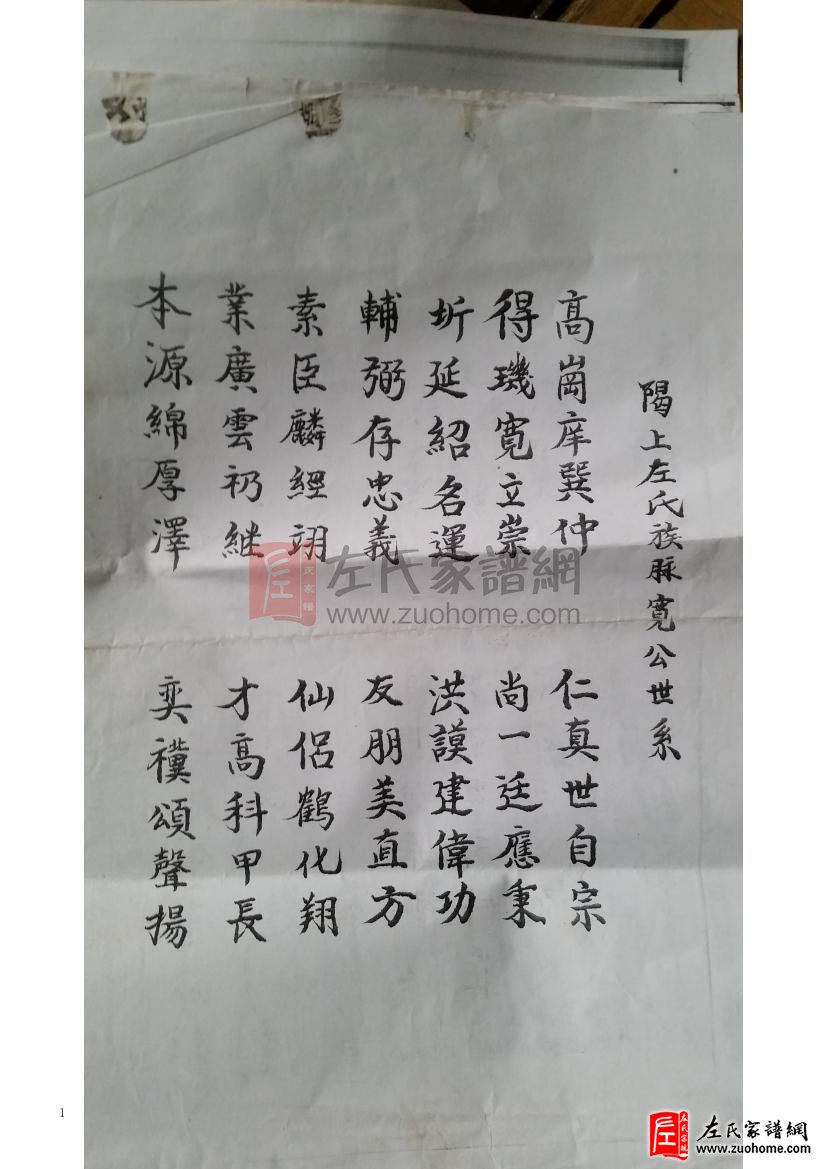 隝上左氏族脉寬公世系
高崗庠巽仲 仁真世自宗
得璣寬立崇 尚一廷應秉
圻延紹名運 洪謨建偉功
輔弼存忠義 友朋美直方
素臣麟經翊 仙侶鶴化翔
業廣雲礽継 才高科甲長
本源綿厚澤 奕禩頌聲揚
左氏家譜網
www.zuohome.com
1
左氏家譜網
www.zuohome.com